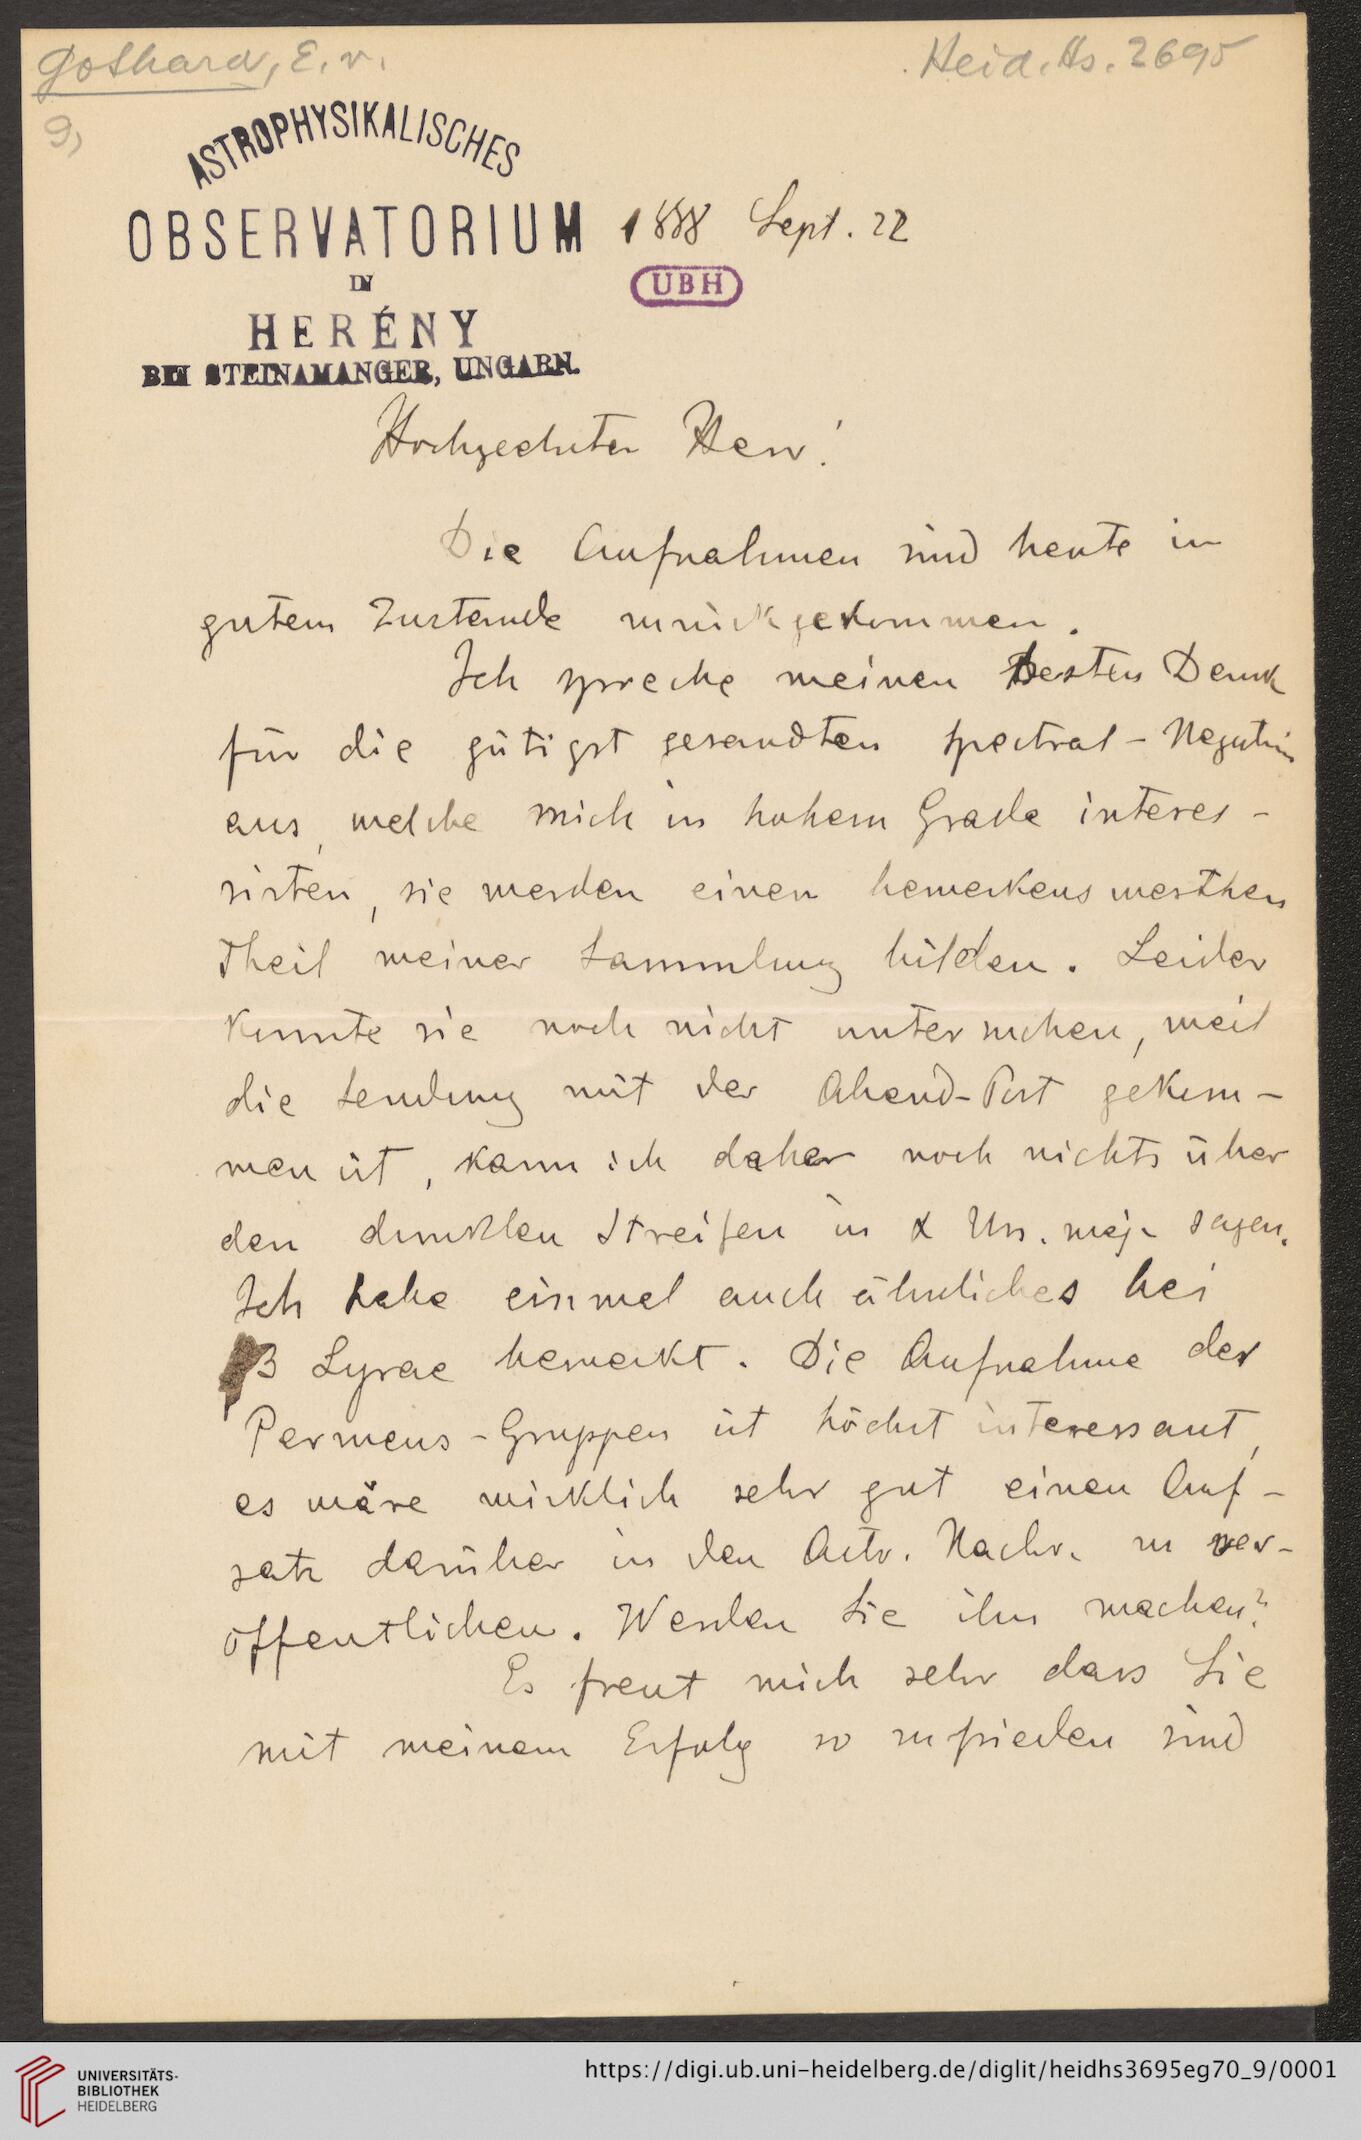 Gothard, E. v.
Heid. Hs. 3695
9)
ASTROPHYSIKALISCHES
OBSERVATORIUM
IN
HERÉNY
BEI STEINAMANGER, UNGARN.
1888 Sept. 22
UBH
Hochgeehrter Herr!
Die Aufnahmen sind heute in
gutem Zustande zurückgekommen.
Ich spreche meinen besten Dank
für die gütigst gesandten Spectral-Negativs
aus, welche mich in hohem Grade interes-
sirten, sie werden einen bemerkenswerthen
Theil meiner Sammlung bilden. Leider
konnte sie noch nicht untersuchen, weil
die Sendung mit der Abend-Post gekom-
men ist, kann ich daher noch nichts über
den dunklen Streifen in α Urs. maj. sagen.
Ich habe einmal auch ähnliches bei
β Lyrae bemerkt. Die Aufnahme der
Perseus-Gruppen ist höchst interessant,
es wäre wirklich sehr gut einen Auf-
satz darüber in den Astr. Nachr. zu ver-
öffentlichen. Werden Sie ihn machen?
Es freut mich sehr dass Sie
mit meinem Erfolg so zufrieden sind
UNIVERSITÄTS-
BIBLIOTHEK
HEIDELBERG
https://digi.ub.uni-heidelberg.de/diglit/heidhs3695eg70_9/0001